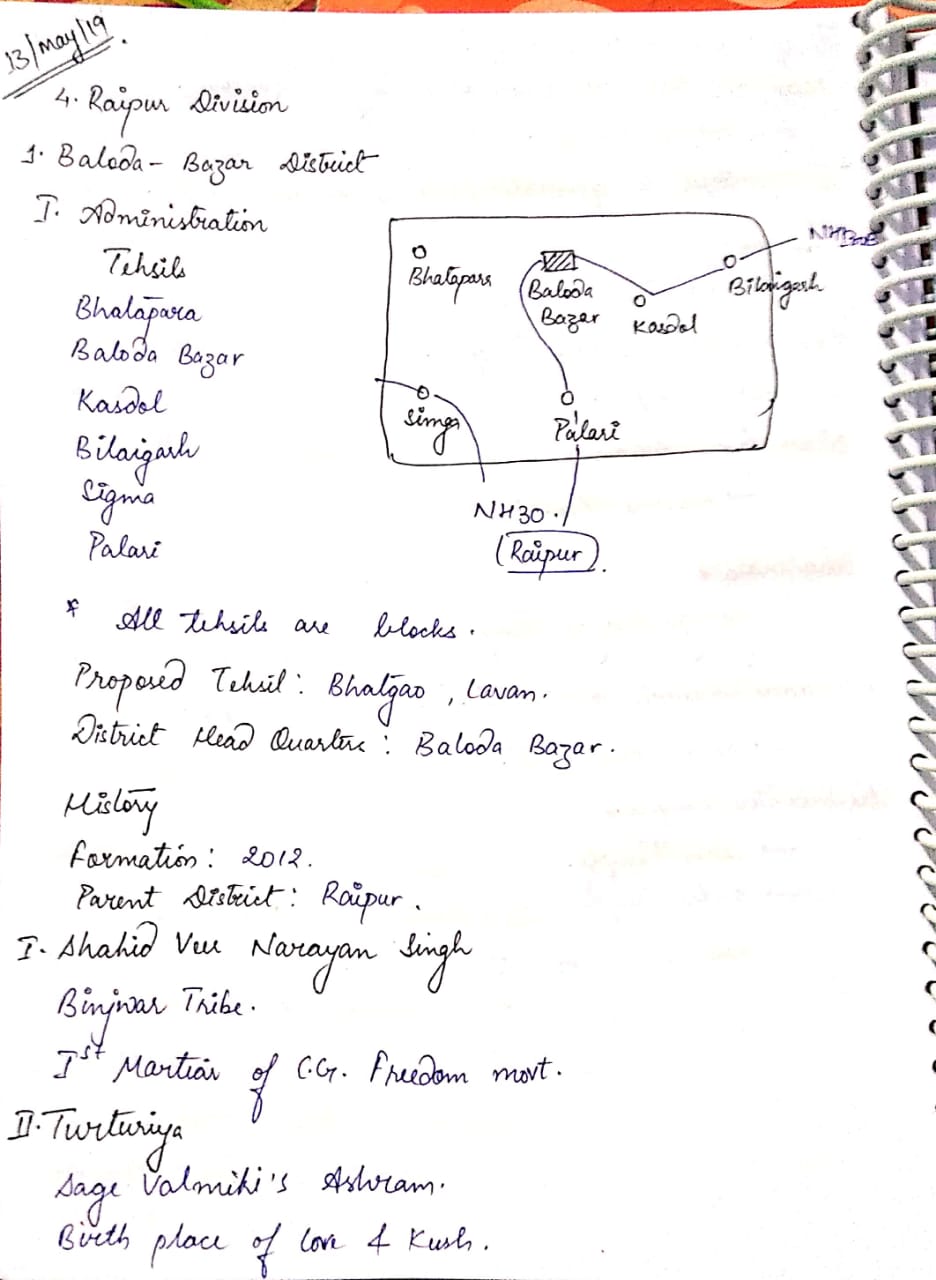 13/may/19.
4. Raipur Division
1. Baloda - Bazar District
I. Administration
Tehsils
Bhatāpara
Baloda Bazar
Kasdol
Bilaigarh
Sigma
Palari
Bhatapara
Baloda
Bazar
Kasdol
Bilaigarh
Simga
Palari
NH30.
(Raipur).
* All tehsils are blocks.
Proposed Tehsil: Bhatgao, Lavan.
District Head Quarters: Baloda Bazar.
History
Formation: 2012.
Parent District: Raipur.
I. Shahid Veer Narayan Singh
Binjwar Tribe.
Ist Martiar of C.G. Freedom movt.
II. Turturiya
Sage Valmiki's Ashram.
Birth place of Love & Kush.